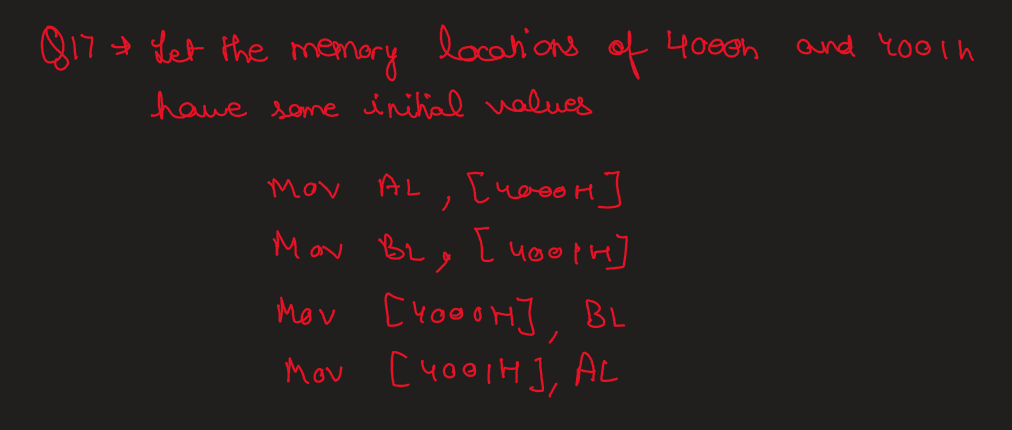 Q17 → Let the memory locations of 4000h and 4001h
have some initial values
Mov AL, [4000H]
Mov BL, [4001H]
Mov [4000H], BL
Mov [4001H], AL